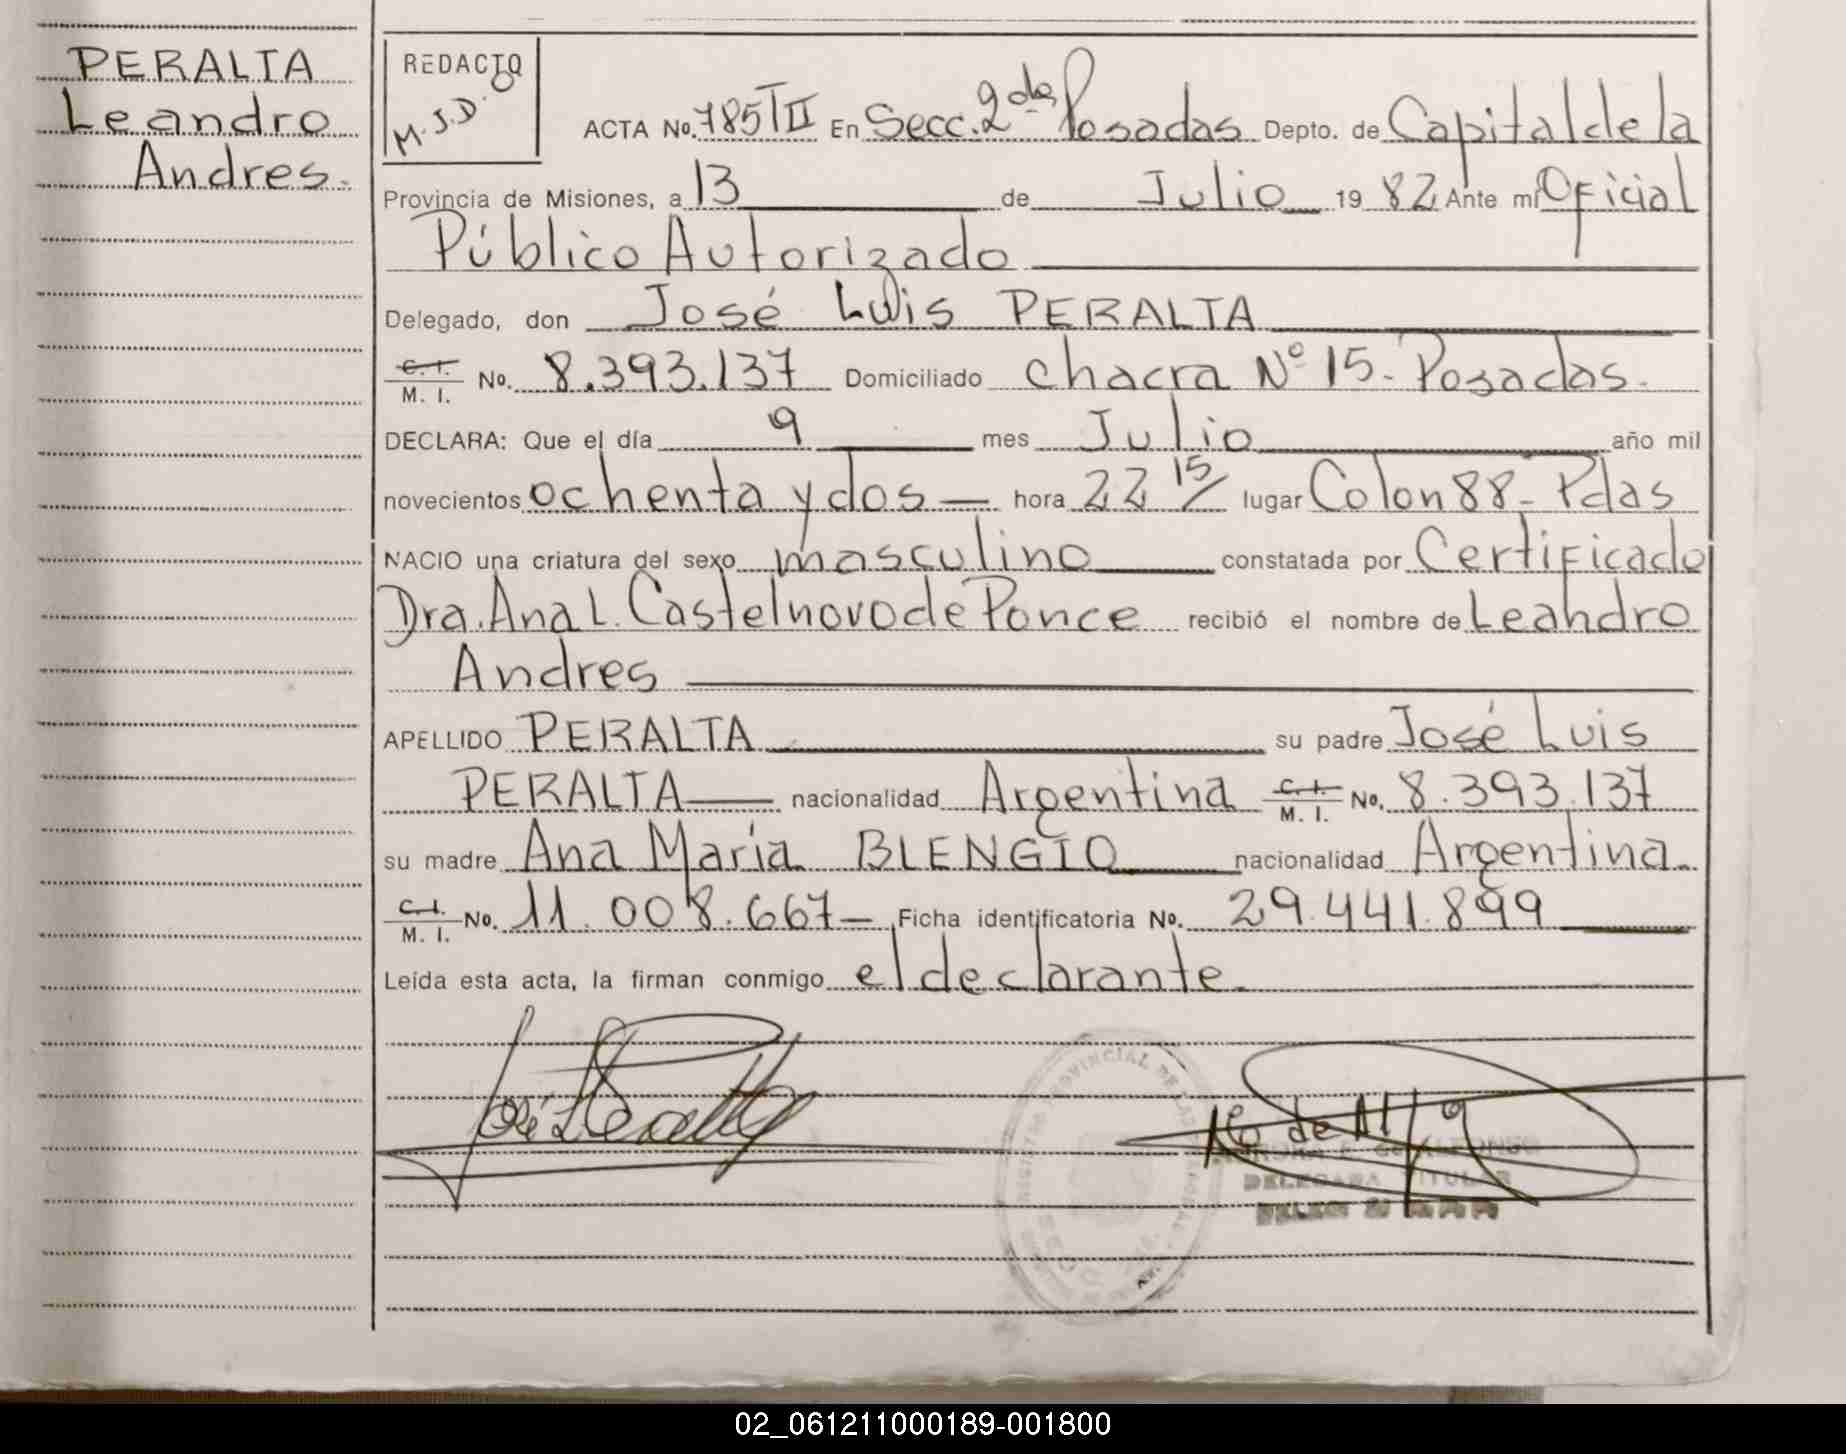 PERALTA
Leandro
Andres.
REDACTO
M.J.D.O
ACTA No. 785 TII En Secc. 2da Posadas Depto. de Capital de la
Provincia de Misiones, a 13 de Julio 19 82 Ante mí Oficial
Público Autorizado
Delegado, don José Luis PERALTA
C.I. M. I. No. 8.393.137 Domiciliado chacra Nº 15 - Posadas.
DECLARA: Que el día 9 mes Julio año mil
novecientos ochenta y dos — hora 22 15/ lugar Colon 88 - Pdas
NACIO una criatura del sexo masculino constatada por Certificado
Dra. Ana L. Castelnovo de Ponce recibió el nombre de Leandro
Andres
APELLIDO PERALTA su padre José Luis
PERALTA — nacionalidad Argentina C.I. M. I. No. 8.393.137
su madre Ana María BLENGIO nacionalidad Argentina
C.I. M. I. No. 11.008.667 — Ficha identificatoria No. 29.441.899
Leída esta acta, la firman conmigo el declarante.
José L Peralta
PROVINCIAL DE LAS
DELEGADA TITULAR
02_061211000189-001800